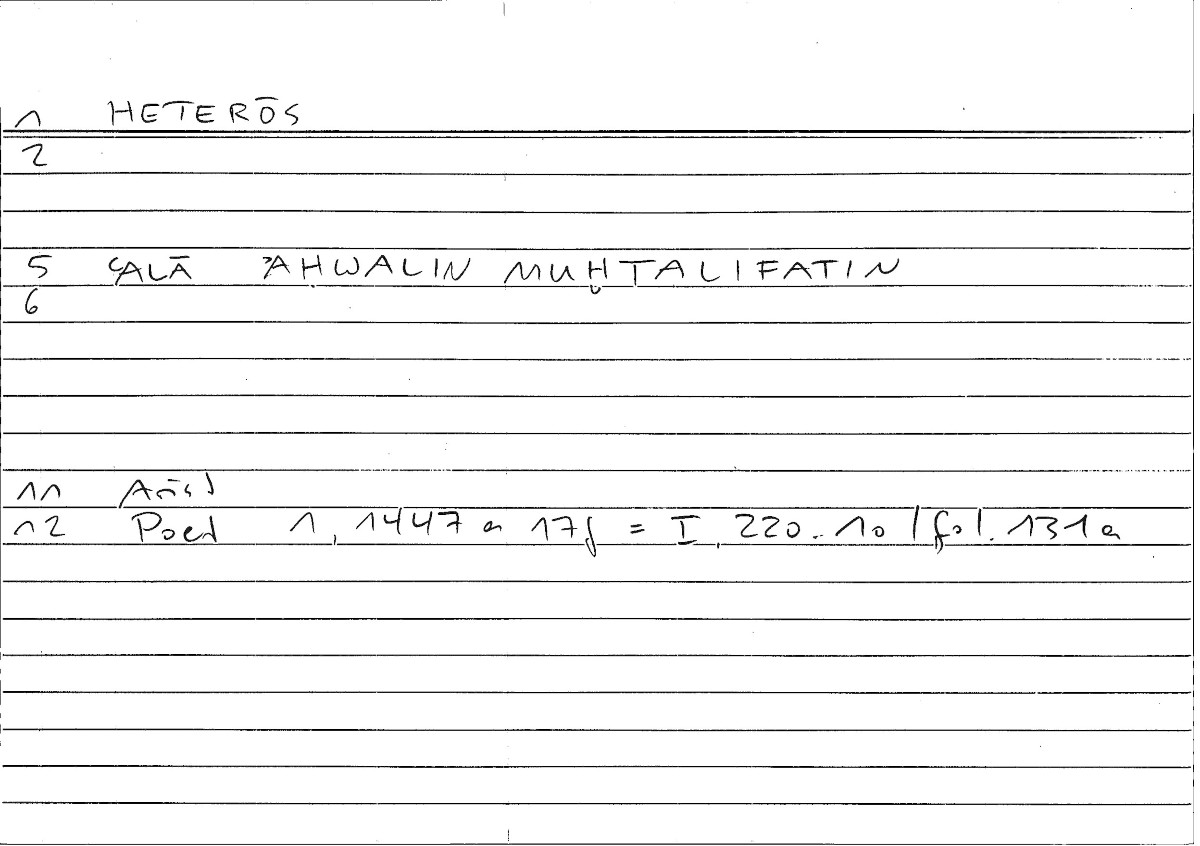 1 HETERŌS
2
5 ʿALĀ ʾAḤWALIN MUḪTALIFATIN
6
11 Arist
12 Poet 1, 1447 a 17f = I, 220.10 / fol. 131a